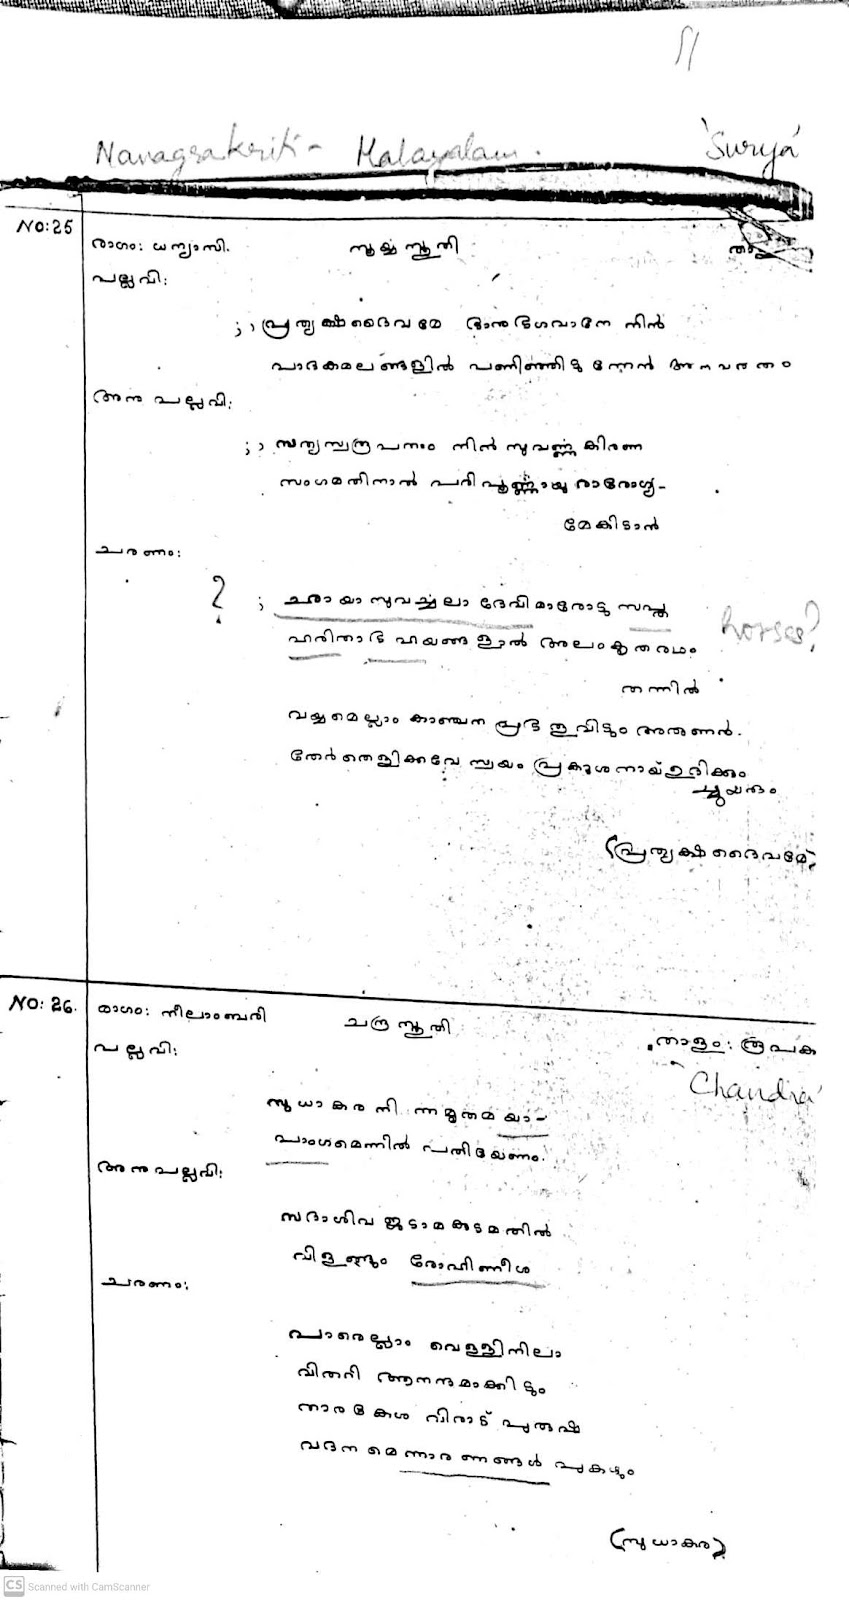 51
Navagrakriti - Malayalam. 'Surya'
NO: 25
രാഗം: ധന്യാസി. സൂര്യസ്തുതി
പല്ലവി:
; , പ്രത്യക്ഷദൈവമേ ഭാനുഭഗവാനേ നിൻ
പാദകമലങ്ങളിൽ പണിഞ്ഞിടുന്നേൻ അനവരതം
അനുപല്ലവി:
; , സത്യസ്വരൂപനാം നിൻ സുവർണ്ണകിരണ
സംഗമതിനാൽ പരിപൂർണ്ണായുരാരോഗ്യ-
മേകിടാൻ
ചരണം:
? ; ഛായാ സുവർച്ചലാ ദേവിമാരോടു സപ്ത
ഹരിതാഭ ഹയങ്ങളാൽ അലംകൃതരഥം horses?
തന്നിൽ
കാഞ്ചന പ്രഭ തൂവിടും അരുണൻ.
തേർതെളിക്കവേ സ്വയം പ്രകാശനായ് ഉദിക്കും
(പ്രത്യക്ഷദൈവമേ)
NO: 26. രാഗം: നീലാംബരി ചന്ദ്രസ്തുതി താളം: രൂപക
പല്ലവി: 'Chandra'
സുധാകര നിന്നമൃതമയാ-
പാംഗമെന്നിൽ പതിയേണം.
അനുപല്ലവി:
സദാശിവ ജടാമകുടമതിൽ
വിളങ്ങും രോഹിണീശ
ചരണം:
പാരെല്ലാം വെള്ളിനിലാ
വിതറി ആനന്ദമാക്കിടും
താരകേശ വിരാട് പുരുഷ
വദനമെന്നാരണങ്ങൾ പുകഴും
(സുധാകര)
CS Scanned with CamScanner